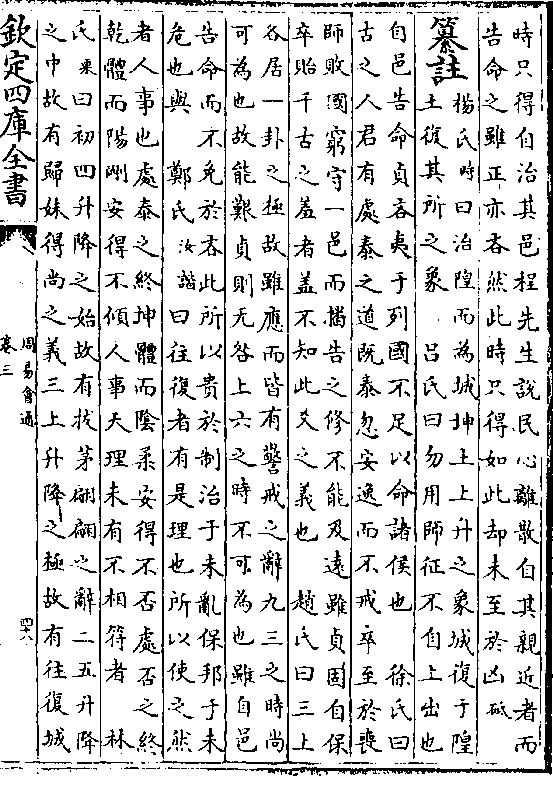 時只得自治其邑程先生說民心離散自其親近者而
告命之雖正亦吝然此時只得如此却未至於凶砥
纂註
楊氏時曰治隍而為城坤土上升之象城復于隍
土復其所之象 呂氏曰勿用師征不自上出也
自邑告命貞吝夷于列國不足以命諸侯也 徐氏曰
古之人君有處泰之道既泰忽安逸而不戒卒至於喪
師敗國窮守一邑而播告之修不能及遠雖貞固自保
卒貽千古之羞者蓋不知此爻之義也 趙氏曰三上
各居一卦之極故雖應而皆有警戒之辭九三之時尚
可為也故能艱貞則无咎上六之時不可為也雖自邑
告命而不免於吝此所以貴於制治于未亂保邦于未
危也與 鄭氏汝諧曰往復者有是理也所以使之然
者人事也處泰之終坤體而陰柔安得不否處否之終
乾體而陽剛安得不傾人事天理未有不相符者 林
氏栗曰初四升降之始故有拔茅翩翩之辭二五升降
之中故有歸妹得尚之義三上升降之極故有往復城
欽定四庫全書
周易會通
卷三
四十六